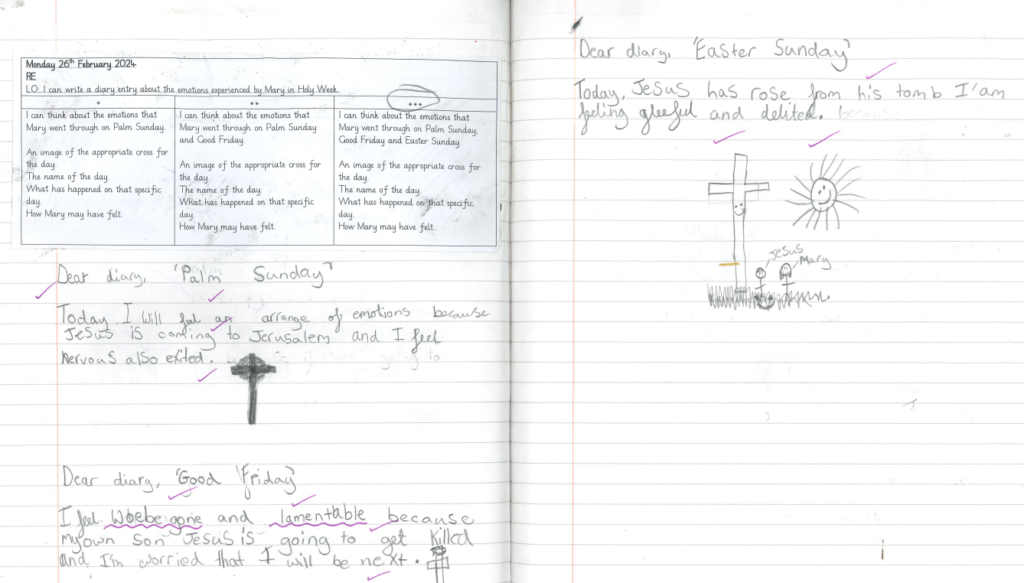 Monday 26th February 2024
RE
LO: I can write a diary entry about the emotions experienced by Mary in Holy Week.
*
I can think about the emotions that
Mary went through on Palm Sunday.
An image of the appropriate cross for
the day.
The name of the day.
What has happened on that specific
day.
How Mary may have felt.
**
I can think about the emotions that
Mary went through on Palm Sunday
and Good Friday.
An image of the appropriate cross for
the day.
The name of the day.
What has happened on that specific
day.
How Mary may have felt.
***
I can think about the emotions that
Mary went through on Palm Sunday,
Good Friday and Easter Sunday.
An image of the appropriate cross for
the day.
The name of the day.
What has happened on that specific
day.
How Mary may have felt.
Dear diary, "Palm Sunday"
Today I will feel an arrange of emotions because
Jesus is coming to Jerusalem and I feel
nervous also exited.
Dear diary, "Good Friday"
I feel Woebegone and lamentable because
my own son Jesus is going to get killed
and I'm worried that I will be next.
Dear diary, "Easter Sunday"
Today, Jesus has rose from his tomb I'am
feeling gleeful and delited.
Jesus
Mary